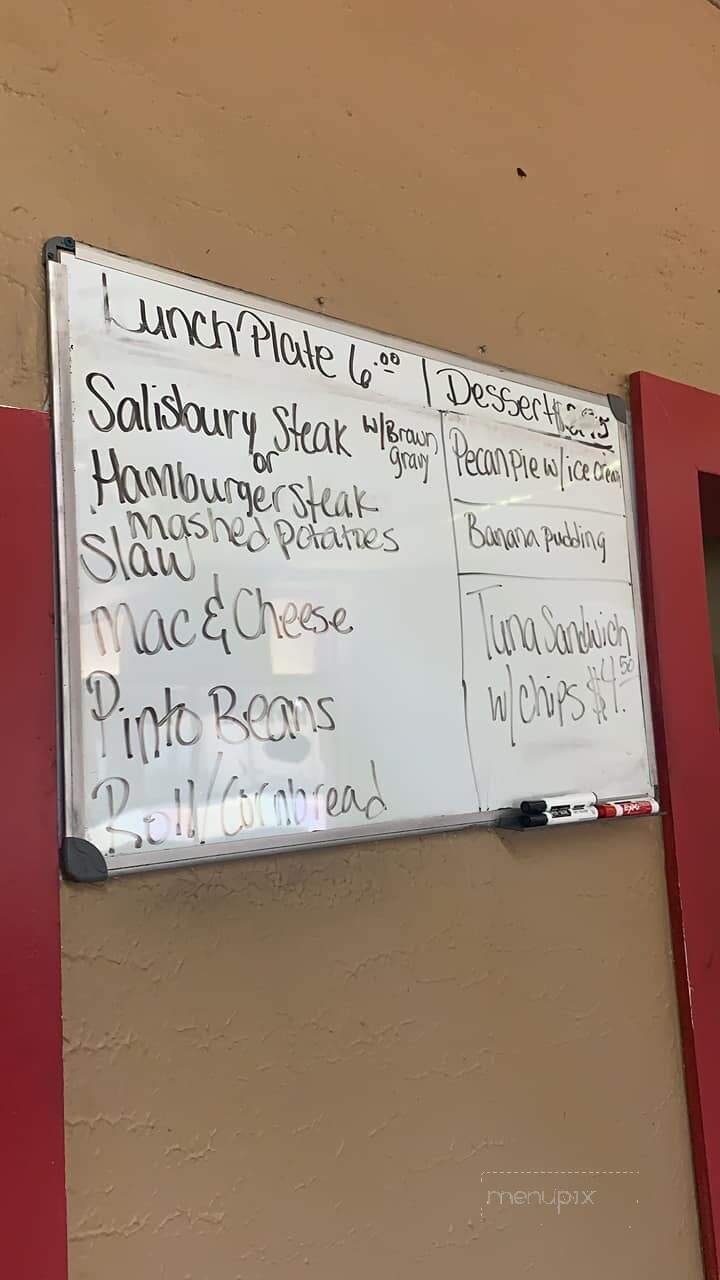 Lunch Plate 6.00
Salisbury Steak w/Brown gravy
or
Hamburger Steak
mashed potatoes
Slaw
Mac & Cheese
Pinto Beans
Roll/Cornbread
Dessert
Pecan pie w/ ice cream
Banana pudding
Tuna Sandwich
w/chips $4.50
EXPO
menupix